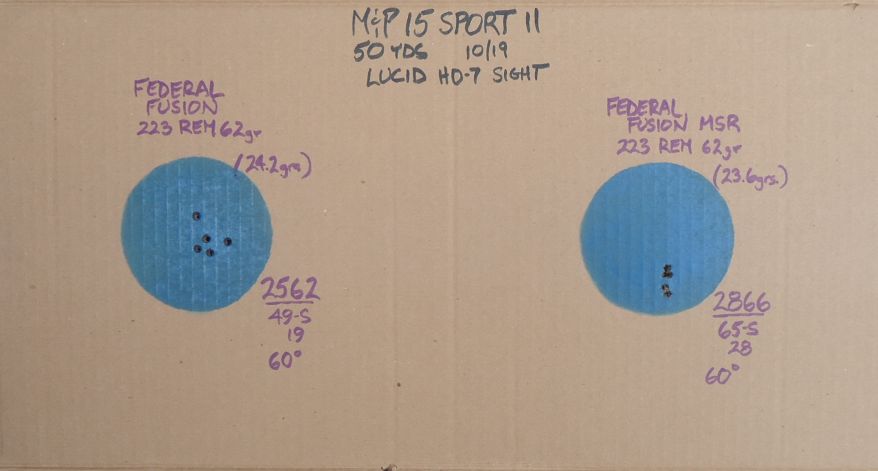 M&P 15 SPORT II
50 YDS 10/19
LUCID HD-7 SIGHT
FEDERAL
FUSION
223 REM 62gr
(24.2grs)
2562
49-S
19
60°
FEDERAL
FUSION MSR
223 REM 62gr
(23.6grs.)
2866
65-S
28
60°